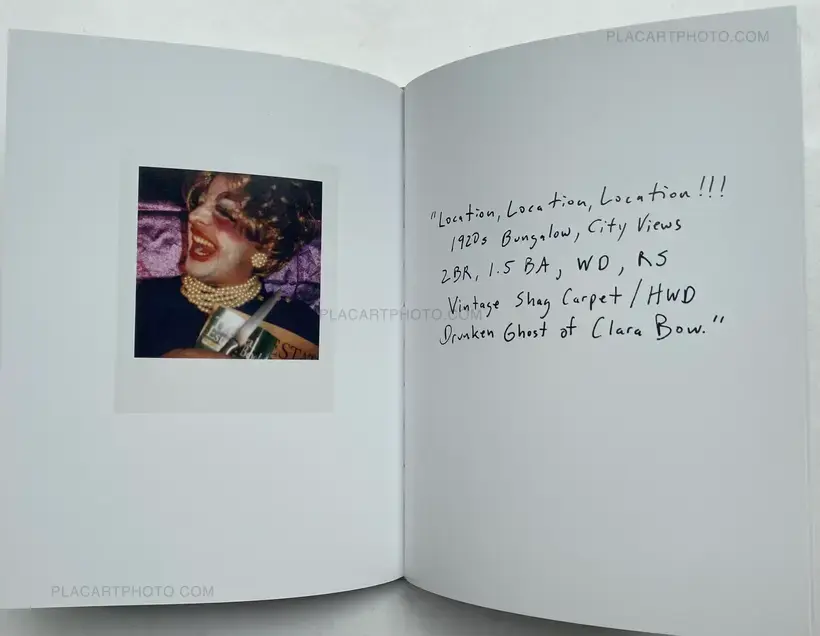 PLACARTPHOTO.COM
"Location, Location, Location!!!
1920s Bungalow, City Views
2BR, 1.5 BA, WD, RS
Vintage Shag Carpet/HWD
Drunken Ghost of Clara Bow."
PLACARTPHOTO.COM
PLACARTPHOTO.COM